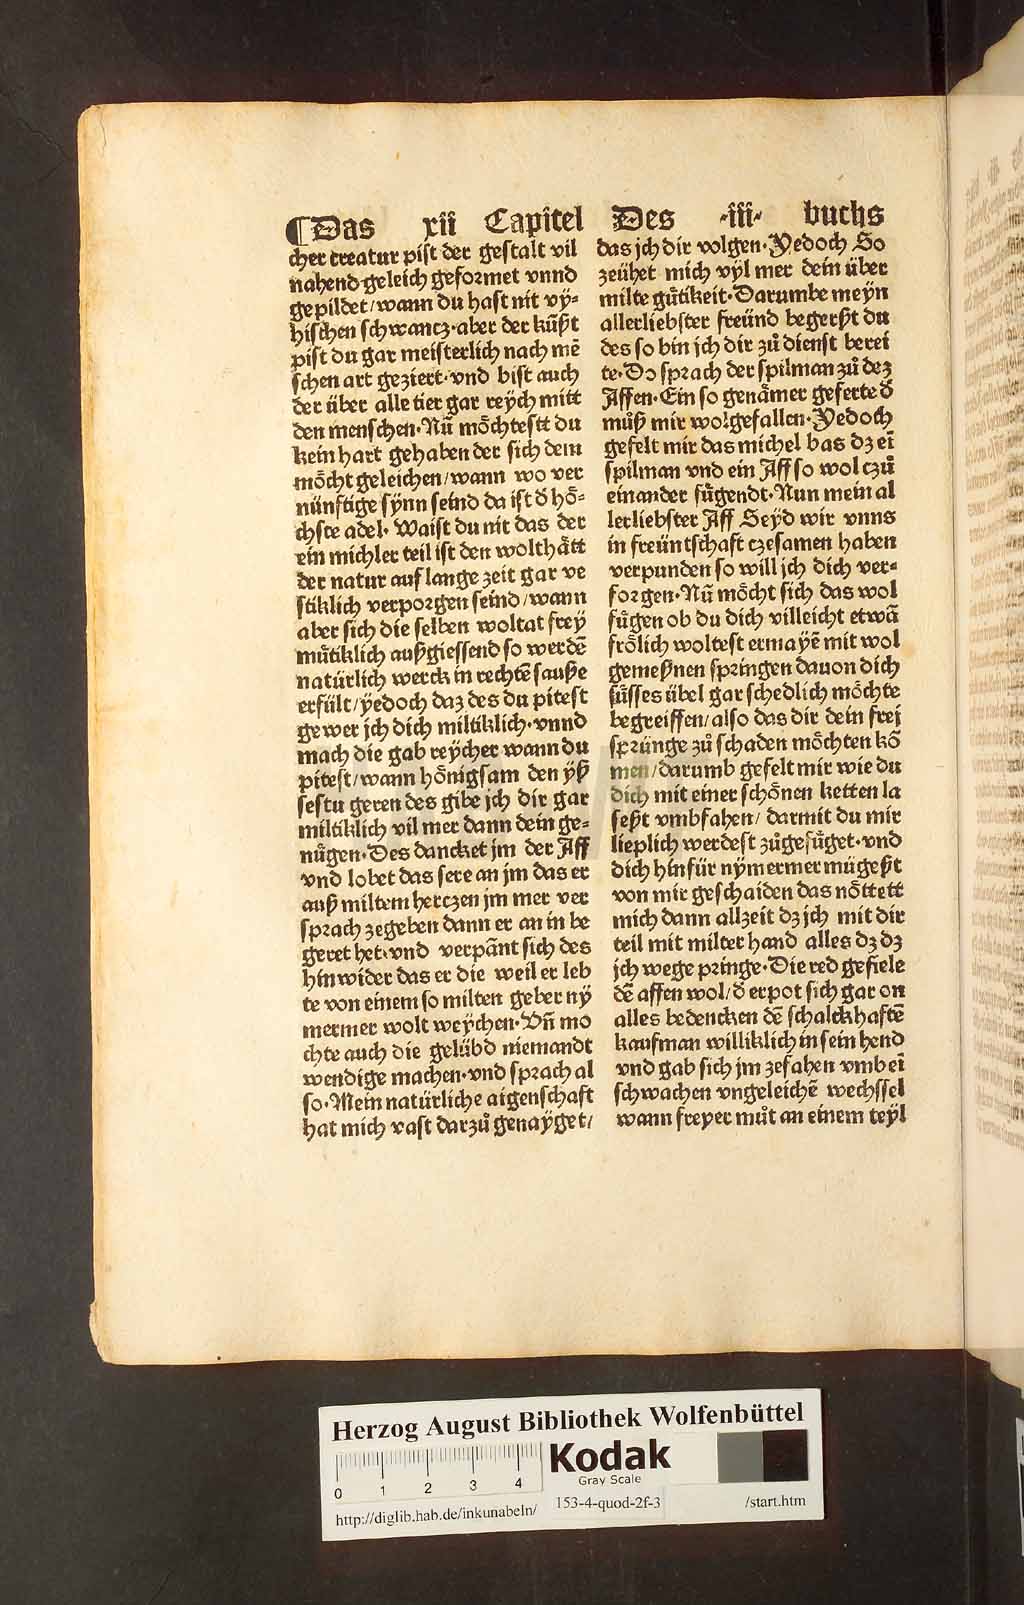 ¶Das xii Capitel Des ·iii· buchs
cher creatur pist der gestalt vil
nahend geleich geformet vnnd
gepildet/wann du hast nit vÿ=
hischen schwancz·aber der ku̇ßt
pist du gar meisterlich nach mē
schen art geziert·vnd bist auch
der über alle tier gar reÿch mitt
den menschen·Nū mo̊chtestt du
kein hart gehaben der sich dem
mo̊cht geleichen/wann wo ver
nünftige sÿnn seind da ist d̄ ho̊=
chste adel· Waist du nit das der
ein michler teil ist den wolthätt
der natur auf lange zeit gar ve
stiklich verporgen seind/wann
aber sich die selben woltat freÿ
mu̇tiklich außgiessend so werdē
natürlich werck in rechtē sauße
erfült/ÿedoch daz des du pitest
gewer jch dich miltiklich·vnnd
mach die gab reÿcher wann du
pitest/wann ho̊nigsam den ÿß
sestu geren des gibe jch dir gar
miltiklich vil mer dann dein ge=
nu̇gen·Des dancket jm der Aff
vnd lobet das sere an jm das er
auß miltem herczen jm mer ver
sprach zegeben dann er an in be
geret het·vnd verpānt sich des
hinwider das er die weil er leb
te von einem so milten geber nÿ
mermer wolt weÿchen·Vn̄ mo
chte auch die gelübd niemandt
wendige machen·vnd sprach al
so·Mein natürliche aigenschaft
hat mich vast darzu̇ genaÿget/
das jch dir volgen·Yedoch So
zeühet mich vÿl mer dein über
milte gu̇tikeit·Darumbe meÿn
allerliebster freünd begerßt du
des so bin jch dir zu̇ dienst berei
te·Do sprach der spilman zu̇ dez
Affen·Ein so genämer geferte d̄
mu̇ß mir wolgefallen·Yedoch
gefelt mir das michel bas dz eī
spilman vnd ein Aff so wol czu̇
einander fu̇gendt·Nun mein al
lerliebster Aff Seÿd wir vnns
in freüntschaft czesamen haben
verpunden so will jch dich ver=
sorgen·Nū mo̊cht sich das wol
fu̇gen ob du dich villeicht etwā
fro̊lich woltest ermaÿē mit wol
gemeßnen springen dauon dich
su̇sses übel gar schedlich mo̊chte
begreiffen/also das dir dein frei
sprünge zu̇ schaden mo̊chten kō
men/darumb gefelt mir wie du
dich mit einer scho̊nen ketten la
seßt vmbfahen/ darmit du mir
lieplich werdest zu̇gefu̇get·vnd
dich hinfür nÿmermer mügeßt
von mir geschaiden das no̊ttett
mich dann allzeit dz jch mit dir
teil mit milter hand alles dz dz
jch wege pringe·Die red gefiele
dē affen wol/d̄ erpot sich gar on
alles bedencken dē schalckhaftē
kaufman williklich in sein hend
vnd gab sich jm zefahen vmb eī
schwachen vngeleichē wechssel
wann freyer mu̇t an einem teÿl
Herzog August Bibliothek Wolfenbüttel
0 1 2 3 4
Kodak
Gray Scale
http://diglib.hab.de/inkunabeln/ 153-4-quod-2f-3 /start.htm